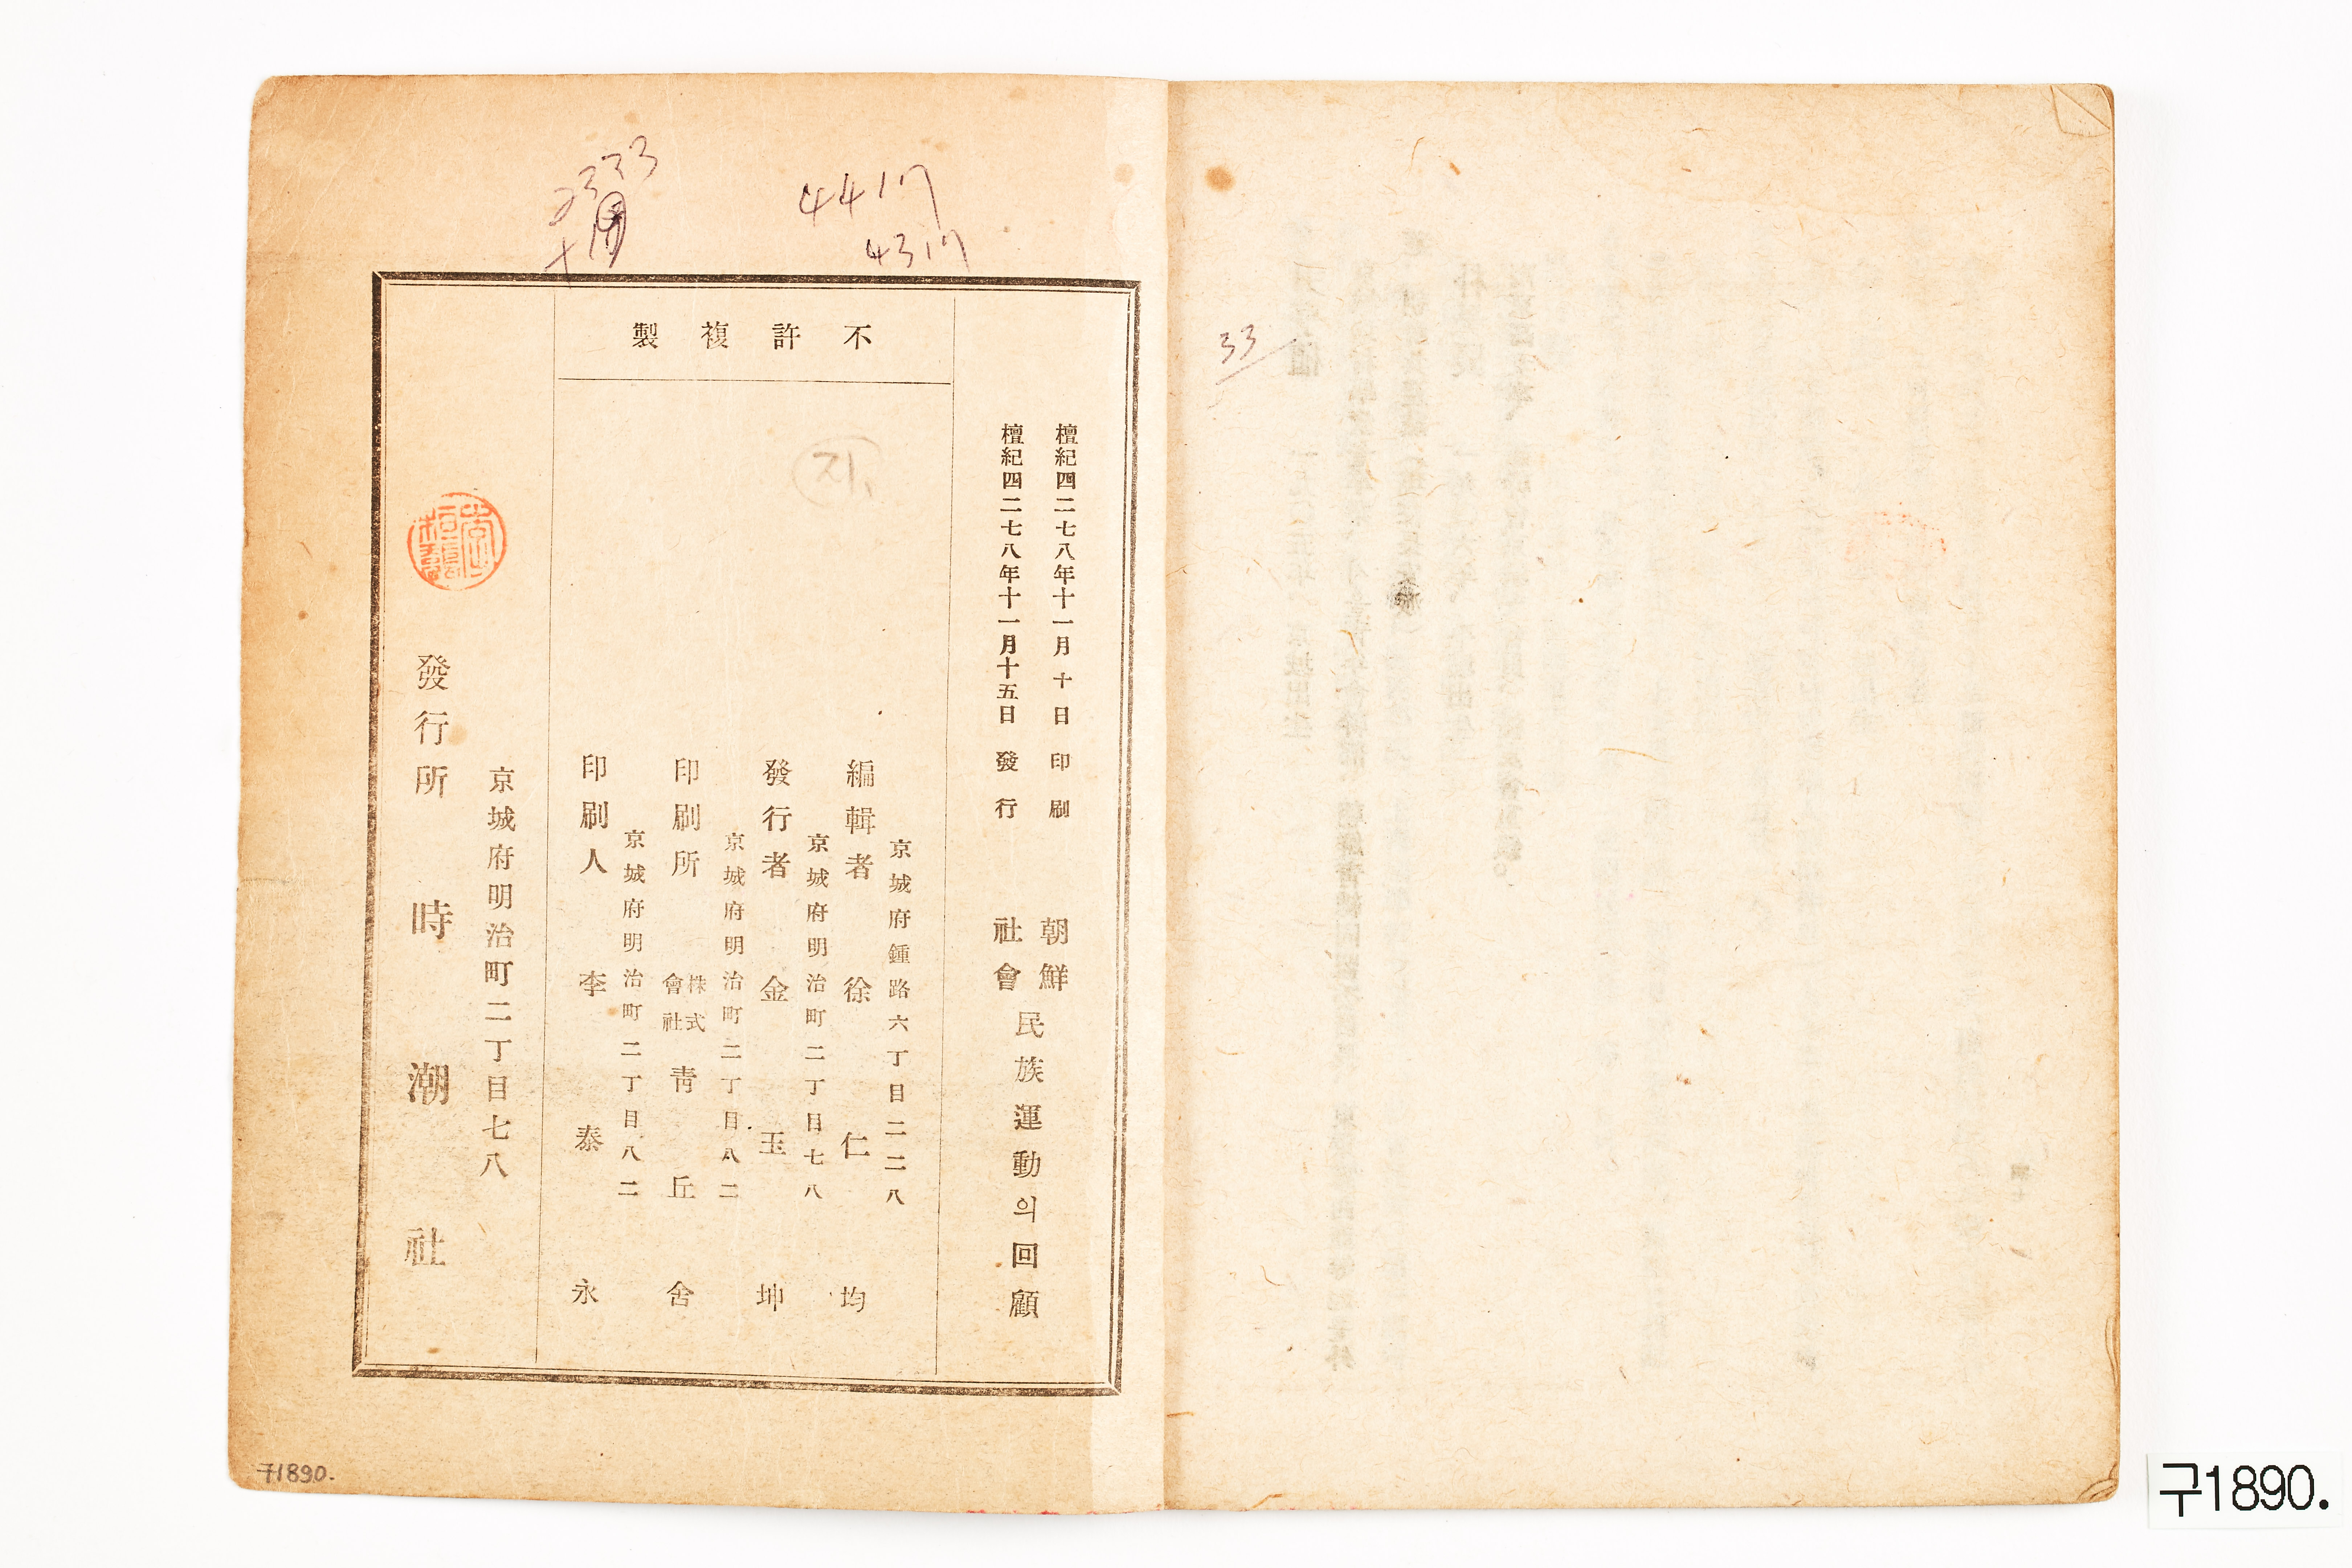 2333
4417
4317
不許複製
檀紀四二七八年十一月十日印刷
檀紀四二七八年十一月十五日發行
朝鮮社會民族運動의回顧
京城府鍾路六丁目二二八
編輯者 徐仁均
京城府明治町二丁目七八
發行者 金玉坤
京城府明治町二丁目八二
印刷所 株式會社 靑丘舍
京城府明治町二丁目八二
印刷人 李泰永
京城府明治町二丁目七八
發行所 時潮社
지
33
구1890.
구1890.